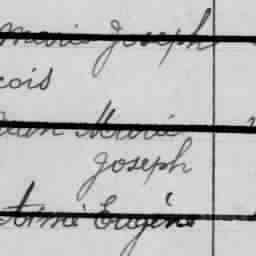 Marie Joseph
cois
Jean Marie
Joseph
Aimé Eugène